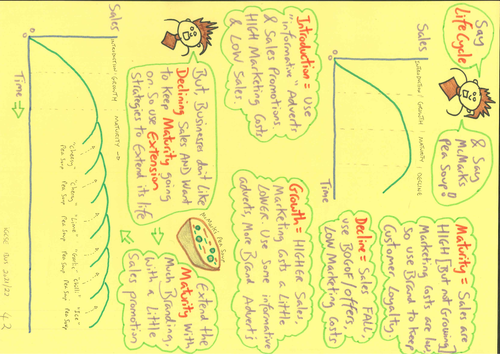 Say
Life Cycle
& Say
McMarks
Pea Soup!
Maturity = Sales are
HIGH [But not Growing]
Marketing Costs are low
So use Brand to keep
Customer Loyalty
Sales
INTRODUCTION - GROWTH - MATURITY - DECLINE
0
Time
Decline = Sales FALL,
use BOGOF/offers,
LOW Marketing Costs
Introduction = Use
"informative" Adverts
& Sales Promotions,
HIGH Marketing Costs
& LOW Sales
Growth = HIGHER Sales,
Marketing Costs a Little
LOWER. Use Some informative
adverts, More Brand Adverts
But, Businesses don't Like
Declining Sales AND Want
to keep Maturity going
on. So use Extension
Strategies to Extend its life
McMarks' Pea Soup
Extend the
Maturity with
Much Branding,
With a Little
Sales promotion
Sales
INTRODUCTION - GROWTH - MATURITY →
0
Time
"cheesy" Pea Soup
"Lime" Pea Soup
"Garlic" Pea Soup
"Chilli" Pea Soup
4.2